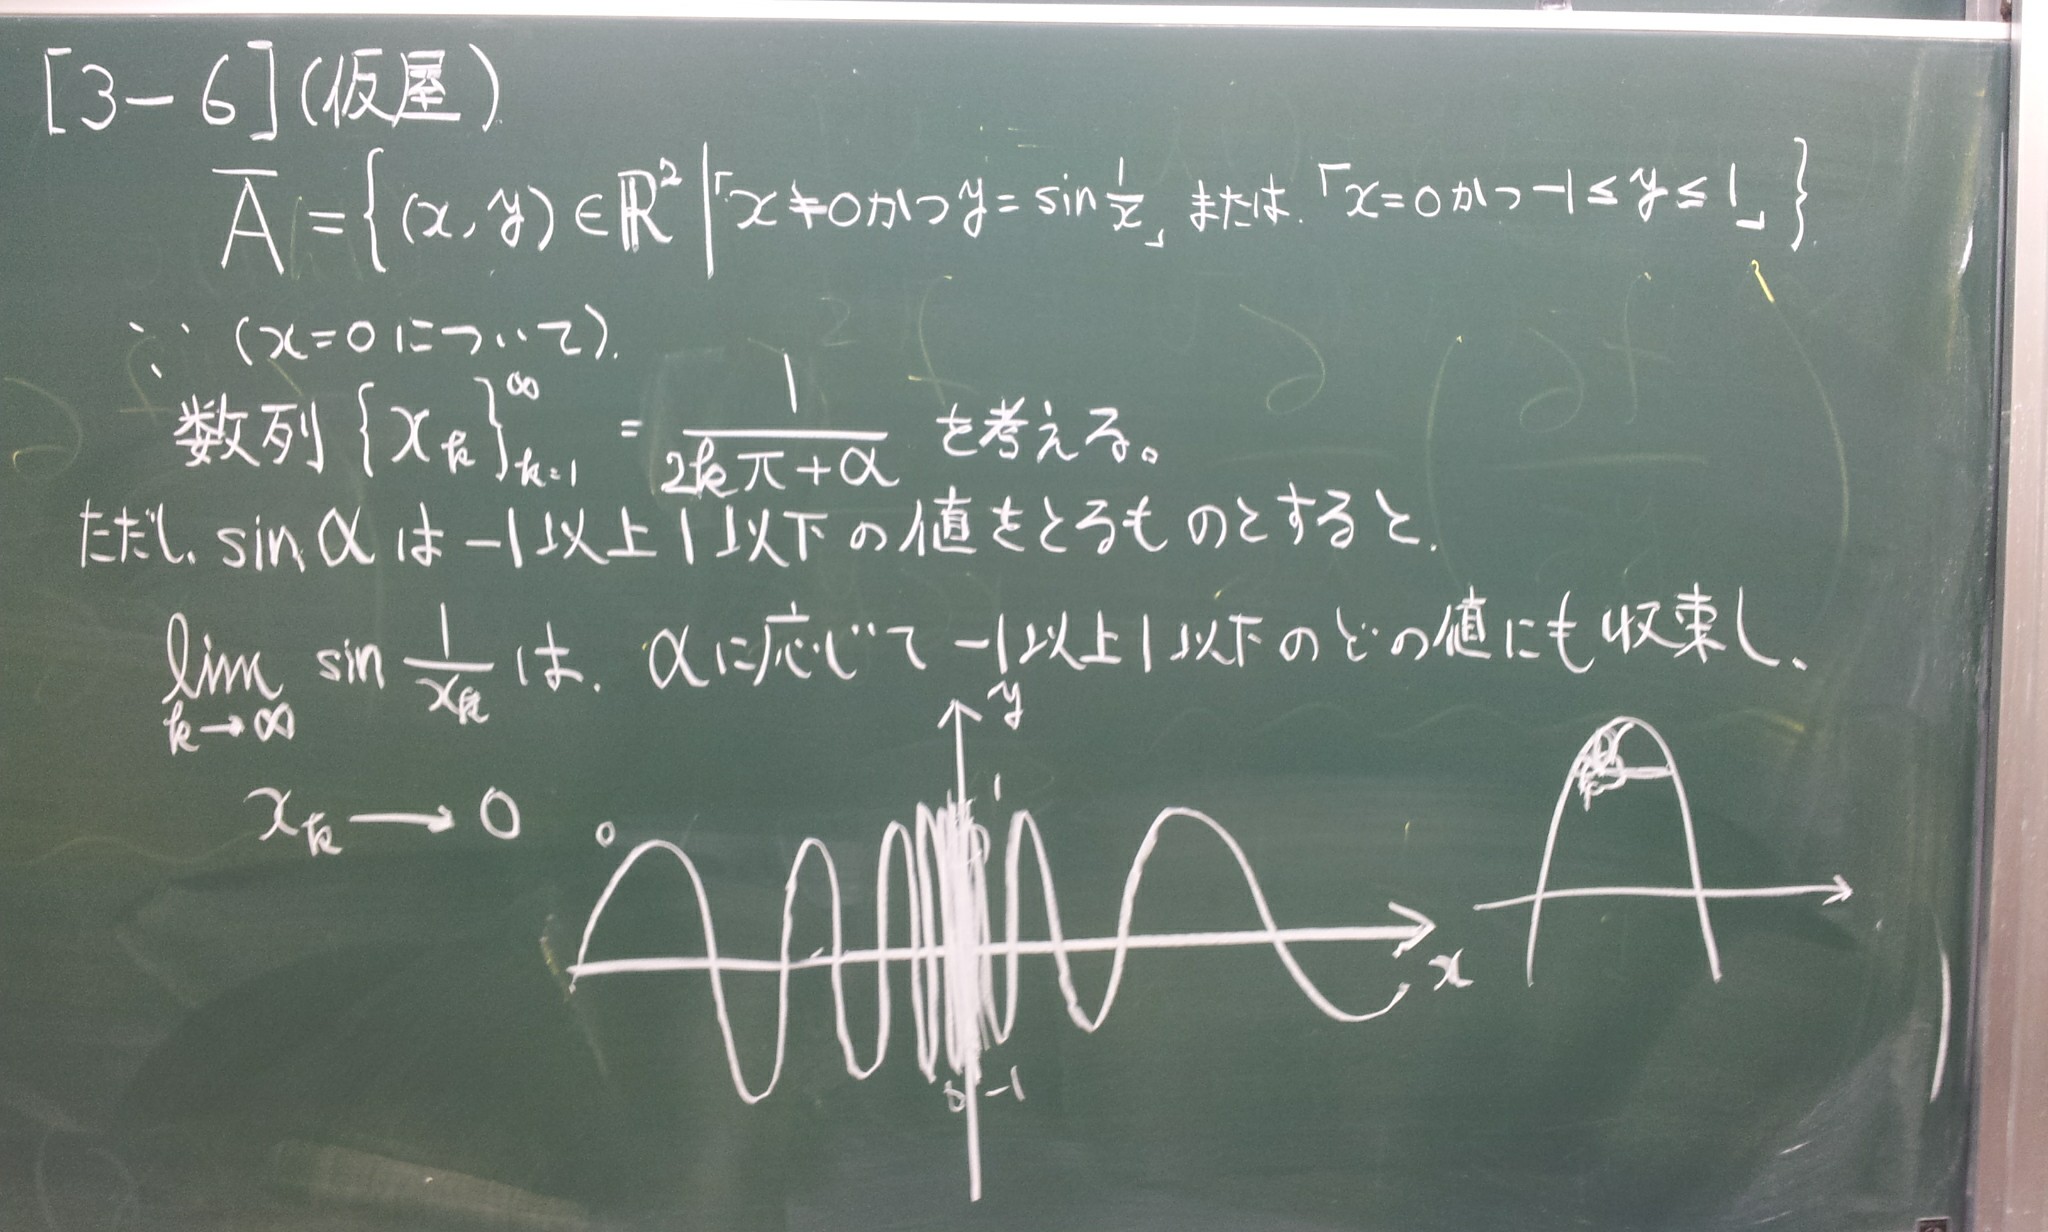 [3-6](仮屋)
Ā = {(x, y) ∈ ℝ² | 「x≠0かつy = sin 1/x」 または 「x=0かつ -1 ≤ y ≤ 1」}
∵ (x=0について).
数列 {x_k}_{k=1}^∞ = 1/(2kπ+α) を考える。
ただし, sin α は -1以上1以下の値をとるものとすると,
lim_{k→∞} sin 1/x_k は, αに応じて -1以上1以下のどの値にも収束し、
x_k → 0
y
1
x
-1